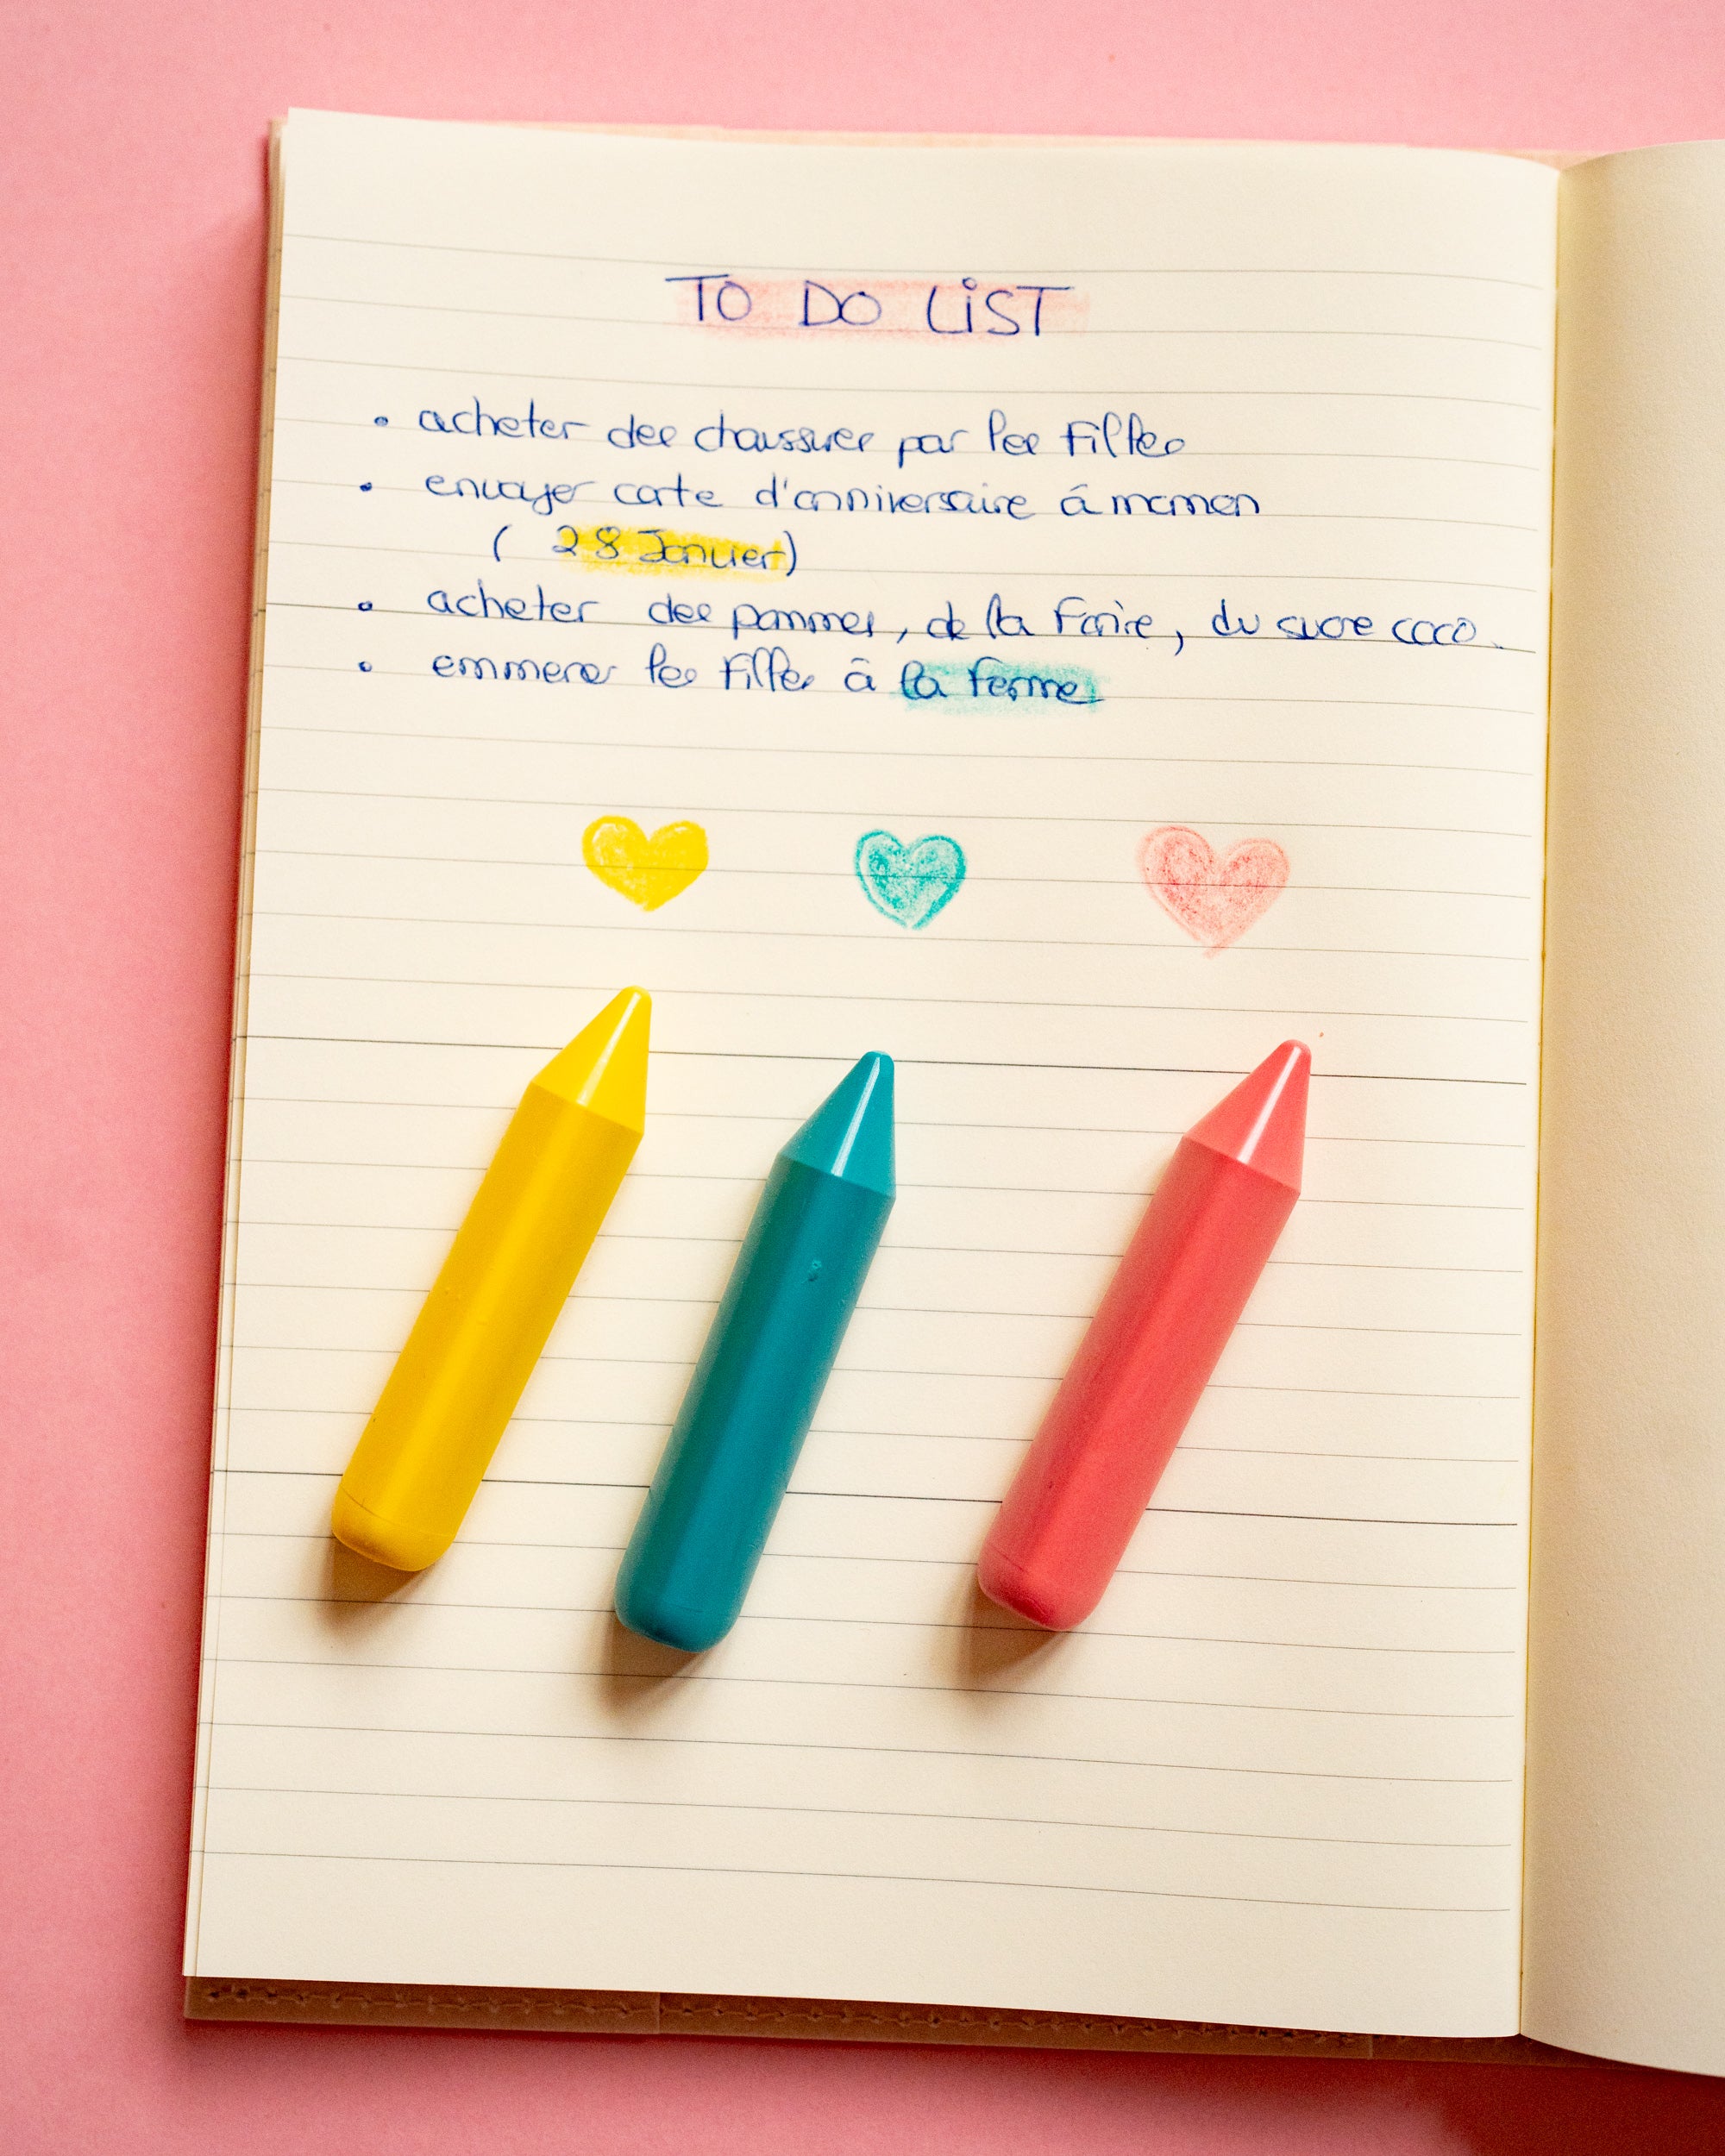 TO DO LIST
• acheter des chaussures par les filles
• envoyer carte d'anniversaire à maman
( 28 Janvier)
• acheter des pommes, de la Farine, du sucre coco.
• emmener les filles à la ferme